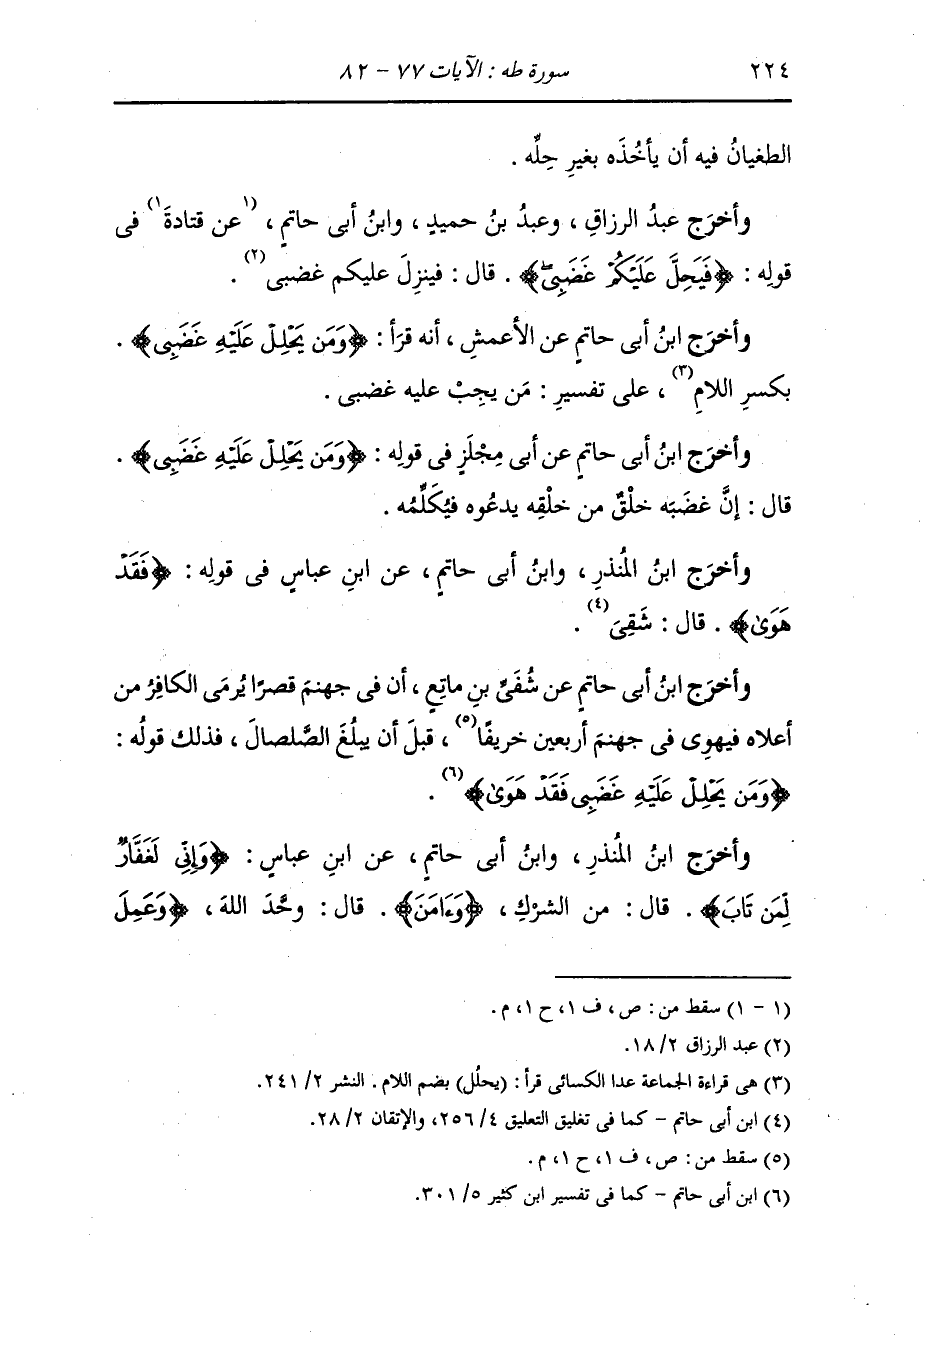 ٢٢٤ سورة طه : الآيات ٧٧ - ٨٢
الطغيانُ فيه أن يأخُذَه بغيرِ حِلِّه .
وأخرَج عبدُ الرزاقِ ، وعبدُ بنُ حميدٍ ، وابنُ أبى حاتمٍ ، (١عن قتادةَ١) فى
قولِه : ﴿فَيَحِلَّ عَلَيْكُمْ غَضَبِىۖ﴾ . قال : فينزِلَ عليكم غضبى(٢) .
وأخرَج ابنُ أبى حاتمٍ عن الأعمشِ ، أنه قرَأ : ﴿وَمَن يَحْلِلْ عَلَيْهِ غَضَبِى﴾ .
بكسرِ اللامِ(٣) ، على تفسيرِ : مَن يجِبْ عليه غضبى .
وأخرَج ابنُ أبى حاتمٍ عن أبى مِجْلَزٍ فى قولِه : ﴿وَمَن يَحْلِلْ عَلَيْهِ غَضَبِى﴾ .
قال : إنَّ غضَبَه خلْقٌ من خلْقِه يدعُوه فيُكَلِّمُه .
وأخرَج ابنُ المُنذرِ ، وابنُ أبى حاتمٍ ، عن ابنِ عباسٍ فى قولِه : ﴿فَقَدْ
هَوَىٰ﴾ . قال : شَقِىَ(٤) .
وأخرَج ابنُ أبى حاتمٍ عن شُفَىِّ بنِ ماتِعٍ ، أن فى جهنمَ قصرًا يُرمَى الكافِرُ من
أعلاه فيهوِى فى جهنمَ أربعين خريفًا(٥) ، قبلَ أن يبلُغَ الصَّلصالَ ، فذلك قولُه :
﴿وَمَن يَحْلِلْ عَلَيْهِ غَضَبِى فَقَدْ هَوَىٰ﴾(٦) .
وأخرَج ابنُ المُنذرِ ، وابنُ أبى حاتمٍ ، عن ابنِ عباسٍ : ﴿وَإِنِّى لَغَفَّارٌ
لِّمَن تَابَ﴾ . قال : من الشركِ ، ﴿وَءَامَنَ﴾ . قال : وحَّدَ اللهَ ، ﴿وَعَمِلَ
(١ - ١) سقط من : ص ، ف ١، ح ١، م .
(٢) عبد الرزاق ٢/ ١٨.
(٣) هى قراءة الجماعة عدا الكسائى قرأ : (يحلُل) بضم اللام . النشر ٢/ ٢٤١.
(٤) ابن أبى حاتم - كما فى تغليق التعليق ٤/ ٢٥٦، والإتقان ٢/ ٢٨.
(٥) سقط من : ص ، ف ١، ح ١، م .
(٦) ابن أبى حاتم - كما فى تفسير ابن كثير ٥/ ٣٠١.